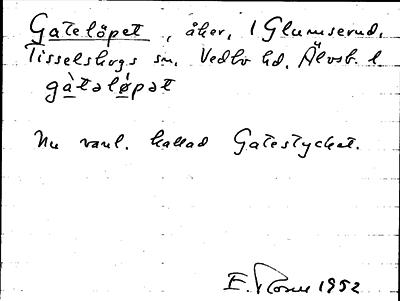 Gatelöpet, åker, 1 Glumserud,
Tisselskogs sn. Vedbo hd. Älvsb. l.
gàtəlø̀pət
Nu vanl. kallad Gatestycket.
E. 1952